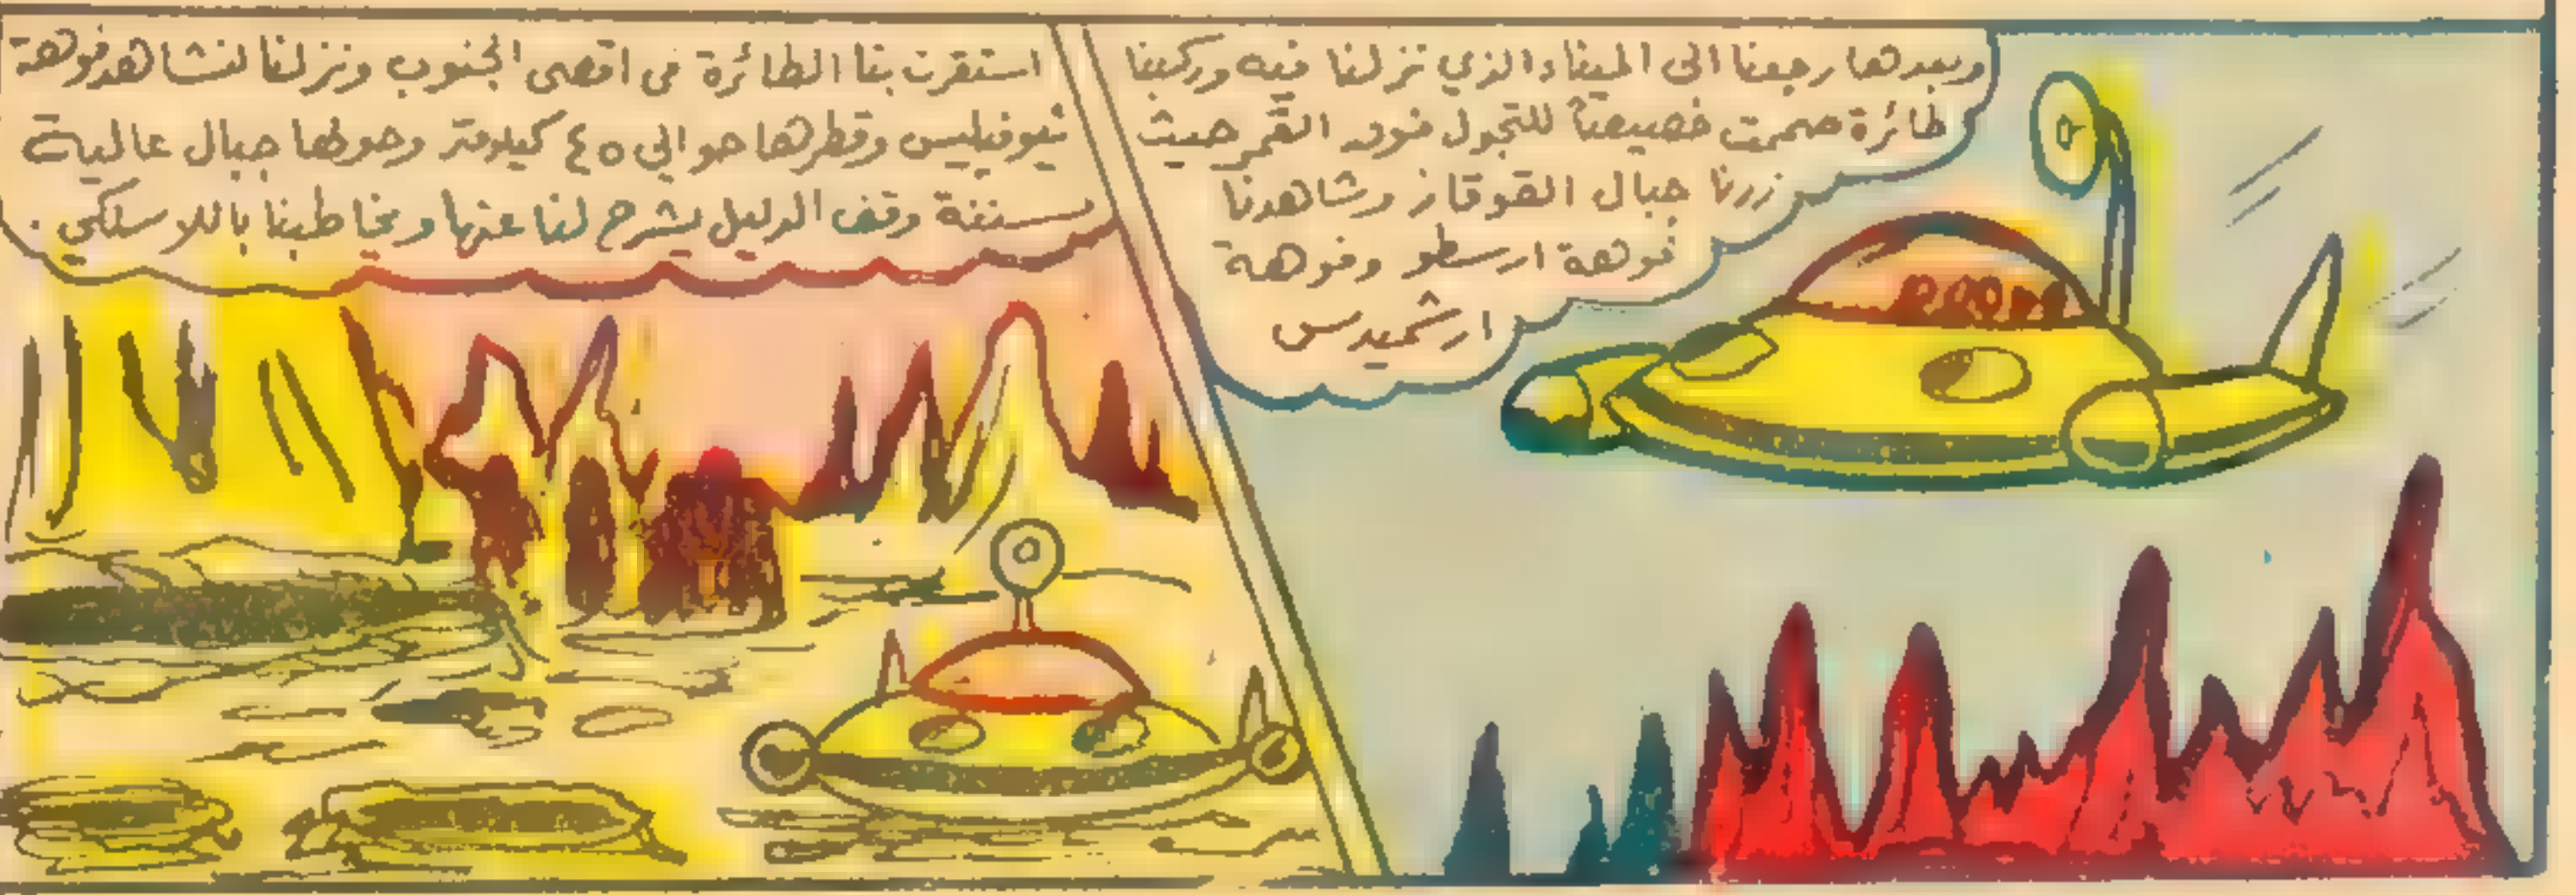 وبعدها رجعنا الى الميناء الذي نزلنا فيه وركبنا
طائرة صممت خصيصاً للتجول فوق القمر حيث
زرنا جبال القوقاز وشاهدنا
فوهة ارسطو وفوهة
ارشميدس
استقرت بنا الطائرة في اقصى الجنوب ونزلنا لنشاهد فوهة
نيوفيليس وقطرها حوالي ٤٥ كيلومتر وحولها جبال عالية
مسننة وقف الدليل يشرح لنا عنها ويخاطبنا باللاسلكي .